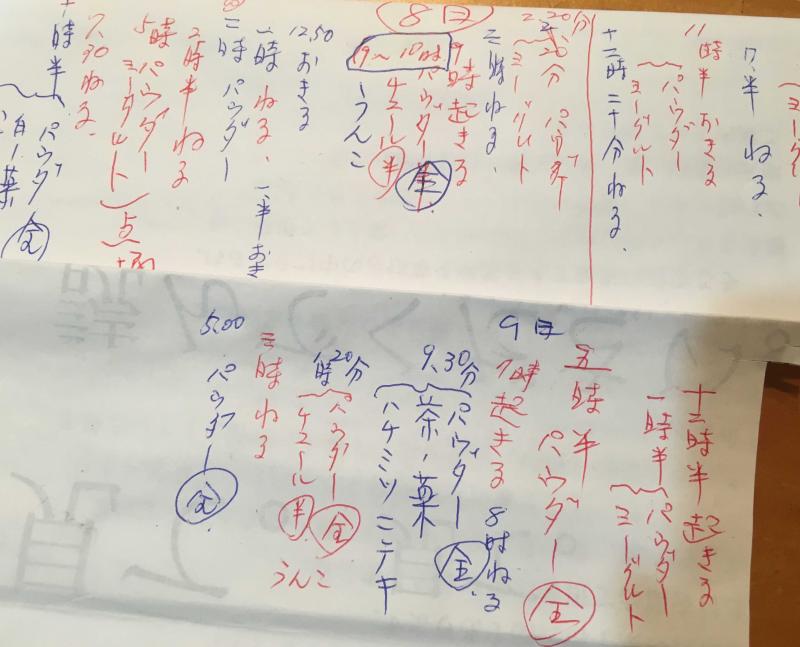 ヨーグ
7、半 ねる、
11時半 おきる
パウダー
ヨーグルト
十二時二十分ねる、
2、20分
パウダー
ヨーグルト
三時ねる、
8日
9時起きる
9〜10時
パウダー 全
チュール 半
うんこ
12.50
おきる
一時 ねる、一半おき
二時 パウダー
2時半 ねる
5時 パウダー
ヨーグルト
点
7、30ねる、
十一時半
パウダー 全
茶
十二時半 起きる
一時半
パウダー
ヨーグルト
五時半
パウダー 全
9日
7時起きる 8時ねる
9、30分
パウダー 全
茶、薬
ハチミツ 二テキ
1時20分
パウダー 全
チュール 半
うんこ
三時ねる
5.00
パウダー 全